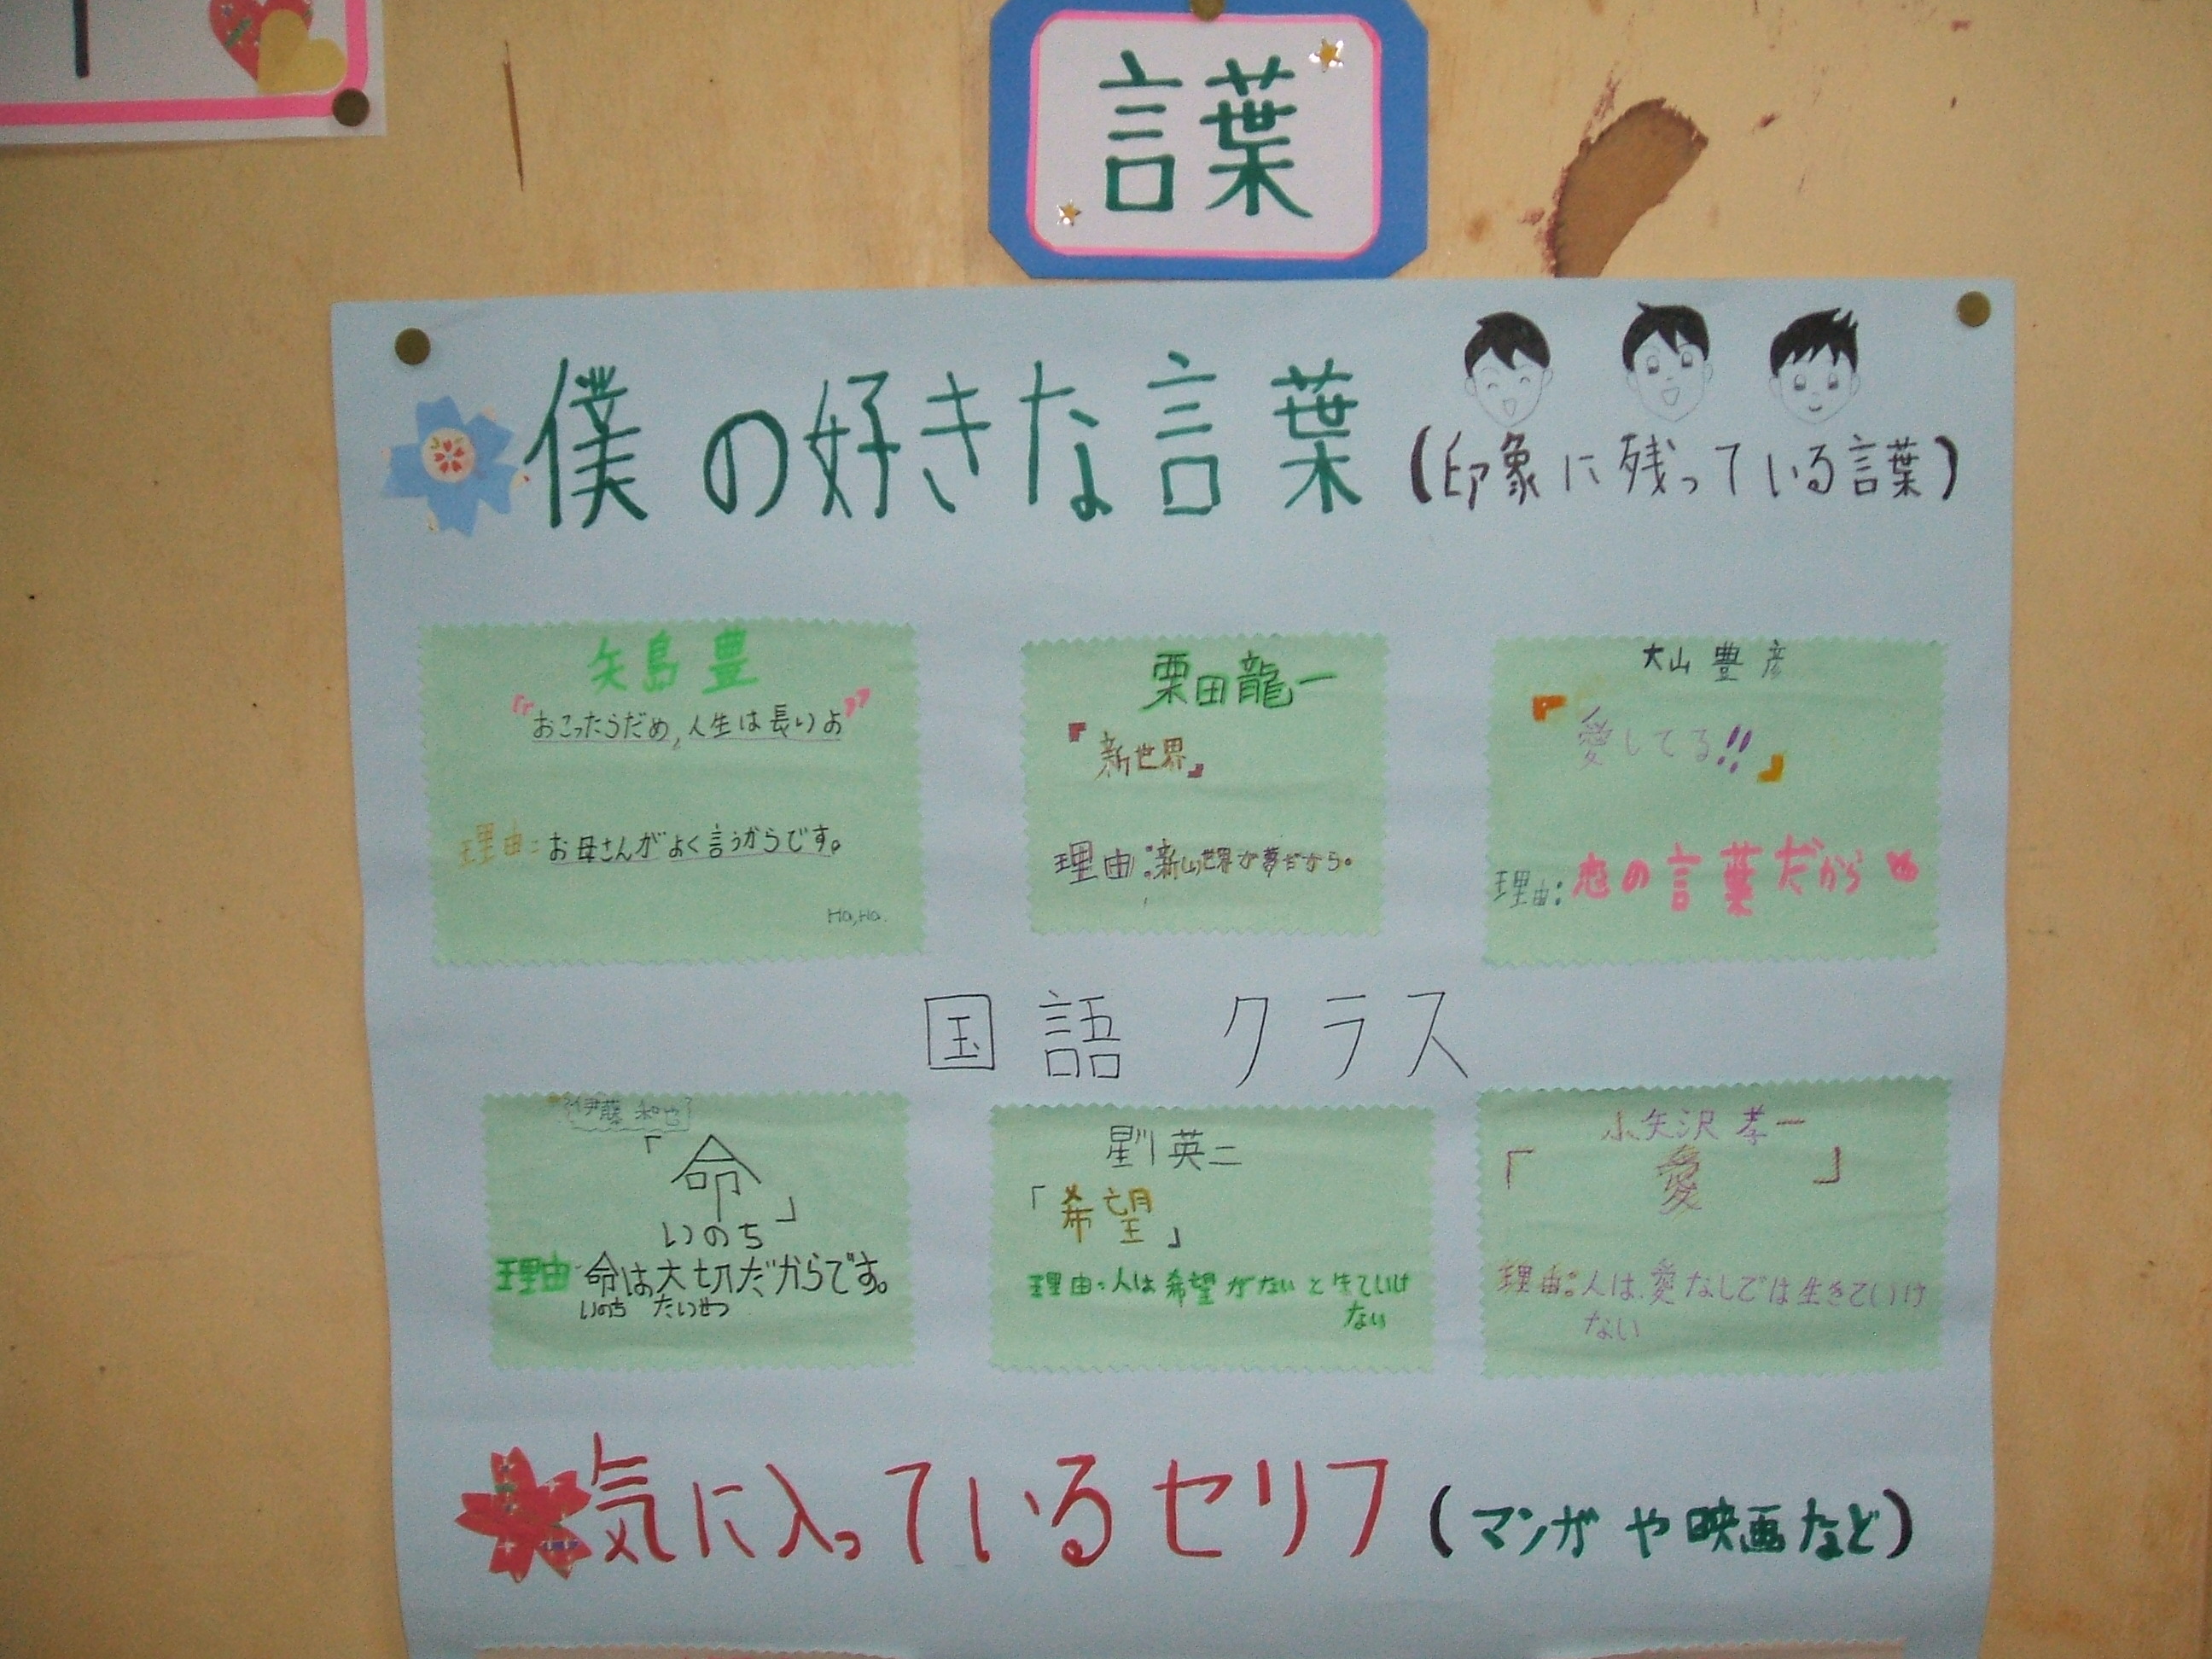 言葉
僕の好きな言葉(印象に残っている言葉)
矢島豊
『おこったらだめ,人生は長いよ』
理由:お母さんがよく言うからです。
Ha,Ha.
栗田龍一
『新世界』
理由:新世界が夢だから。
大山豊彦
『愛してる!!』
理由:恋の言葉だから
国語クラス
伊藤和也
「命」
いのち
理由 命は大切だからです。
いのち たいせつ
劉英二
「希望」
理由:人は希望がないと生ていけ
ない
小矢沢孝一
「愛」
理由:人は、愛なしでは生きていけ
ない
気に入っているセリフ(マンガや映画など)